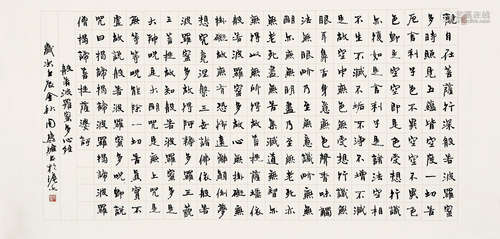 觀自在菩薩行深般若波羅蜜
多時照見五蘊皆空度一切苦
厄舍利子色不異空空不異色
色即是空空即是色受想行識
亦復如是舍利子是諸法空相
不生不滅不垢不淨不增不減
是故空中無色無受想行識無
眼耳鼻舌身意無色聲香味觸
法無眼界乃至無意識界無無
明亦無無明盡乃至無老死亦
無老死盡無苦集滅道無智亦
無得以無所得故菩提薩埵依
般若波羅蜜多故心無罣礙無
罣礙故無有恐怖遠離顛倒夢
想究竟涅槃三世諸佛依般若
波羅蜜多故得阿耨多羅三藐
三菩提故知般若波羅蜜多是
大神咒是大明咒是無上咒是
無等等咒能除一切苦真實不
虛故說般若波羅蜜多咒即說
咒曰揭諦揭諦波羅揭諦波羅
僧揭諦菩提薩婆訶
般若波羅蜜多心經
歲次辰金秋周於